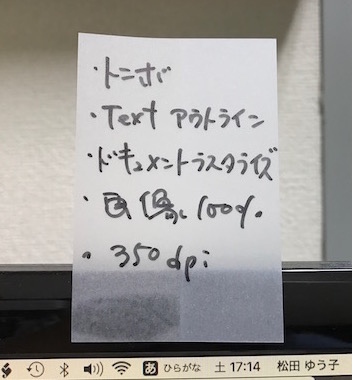 ・トンボ
・Text アウトライン
・ドキュメントラスタライズ
・画像 100%
・350dpi
あ ひらがな 土 17:14 松田 ゆう子